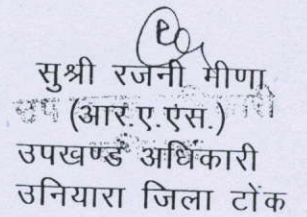 सुश्री रजनी मीणा
(आर.ए.एस.)
उपखण्ड अधिकारी
उनियारा जिला टोंक